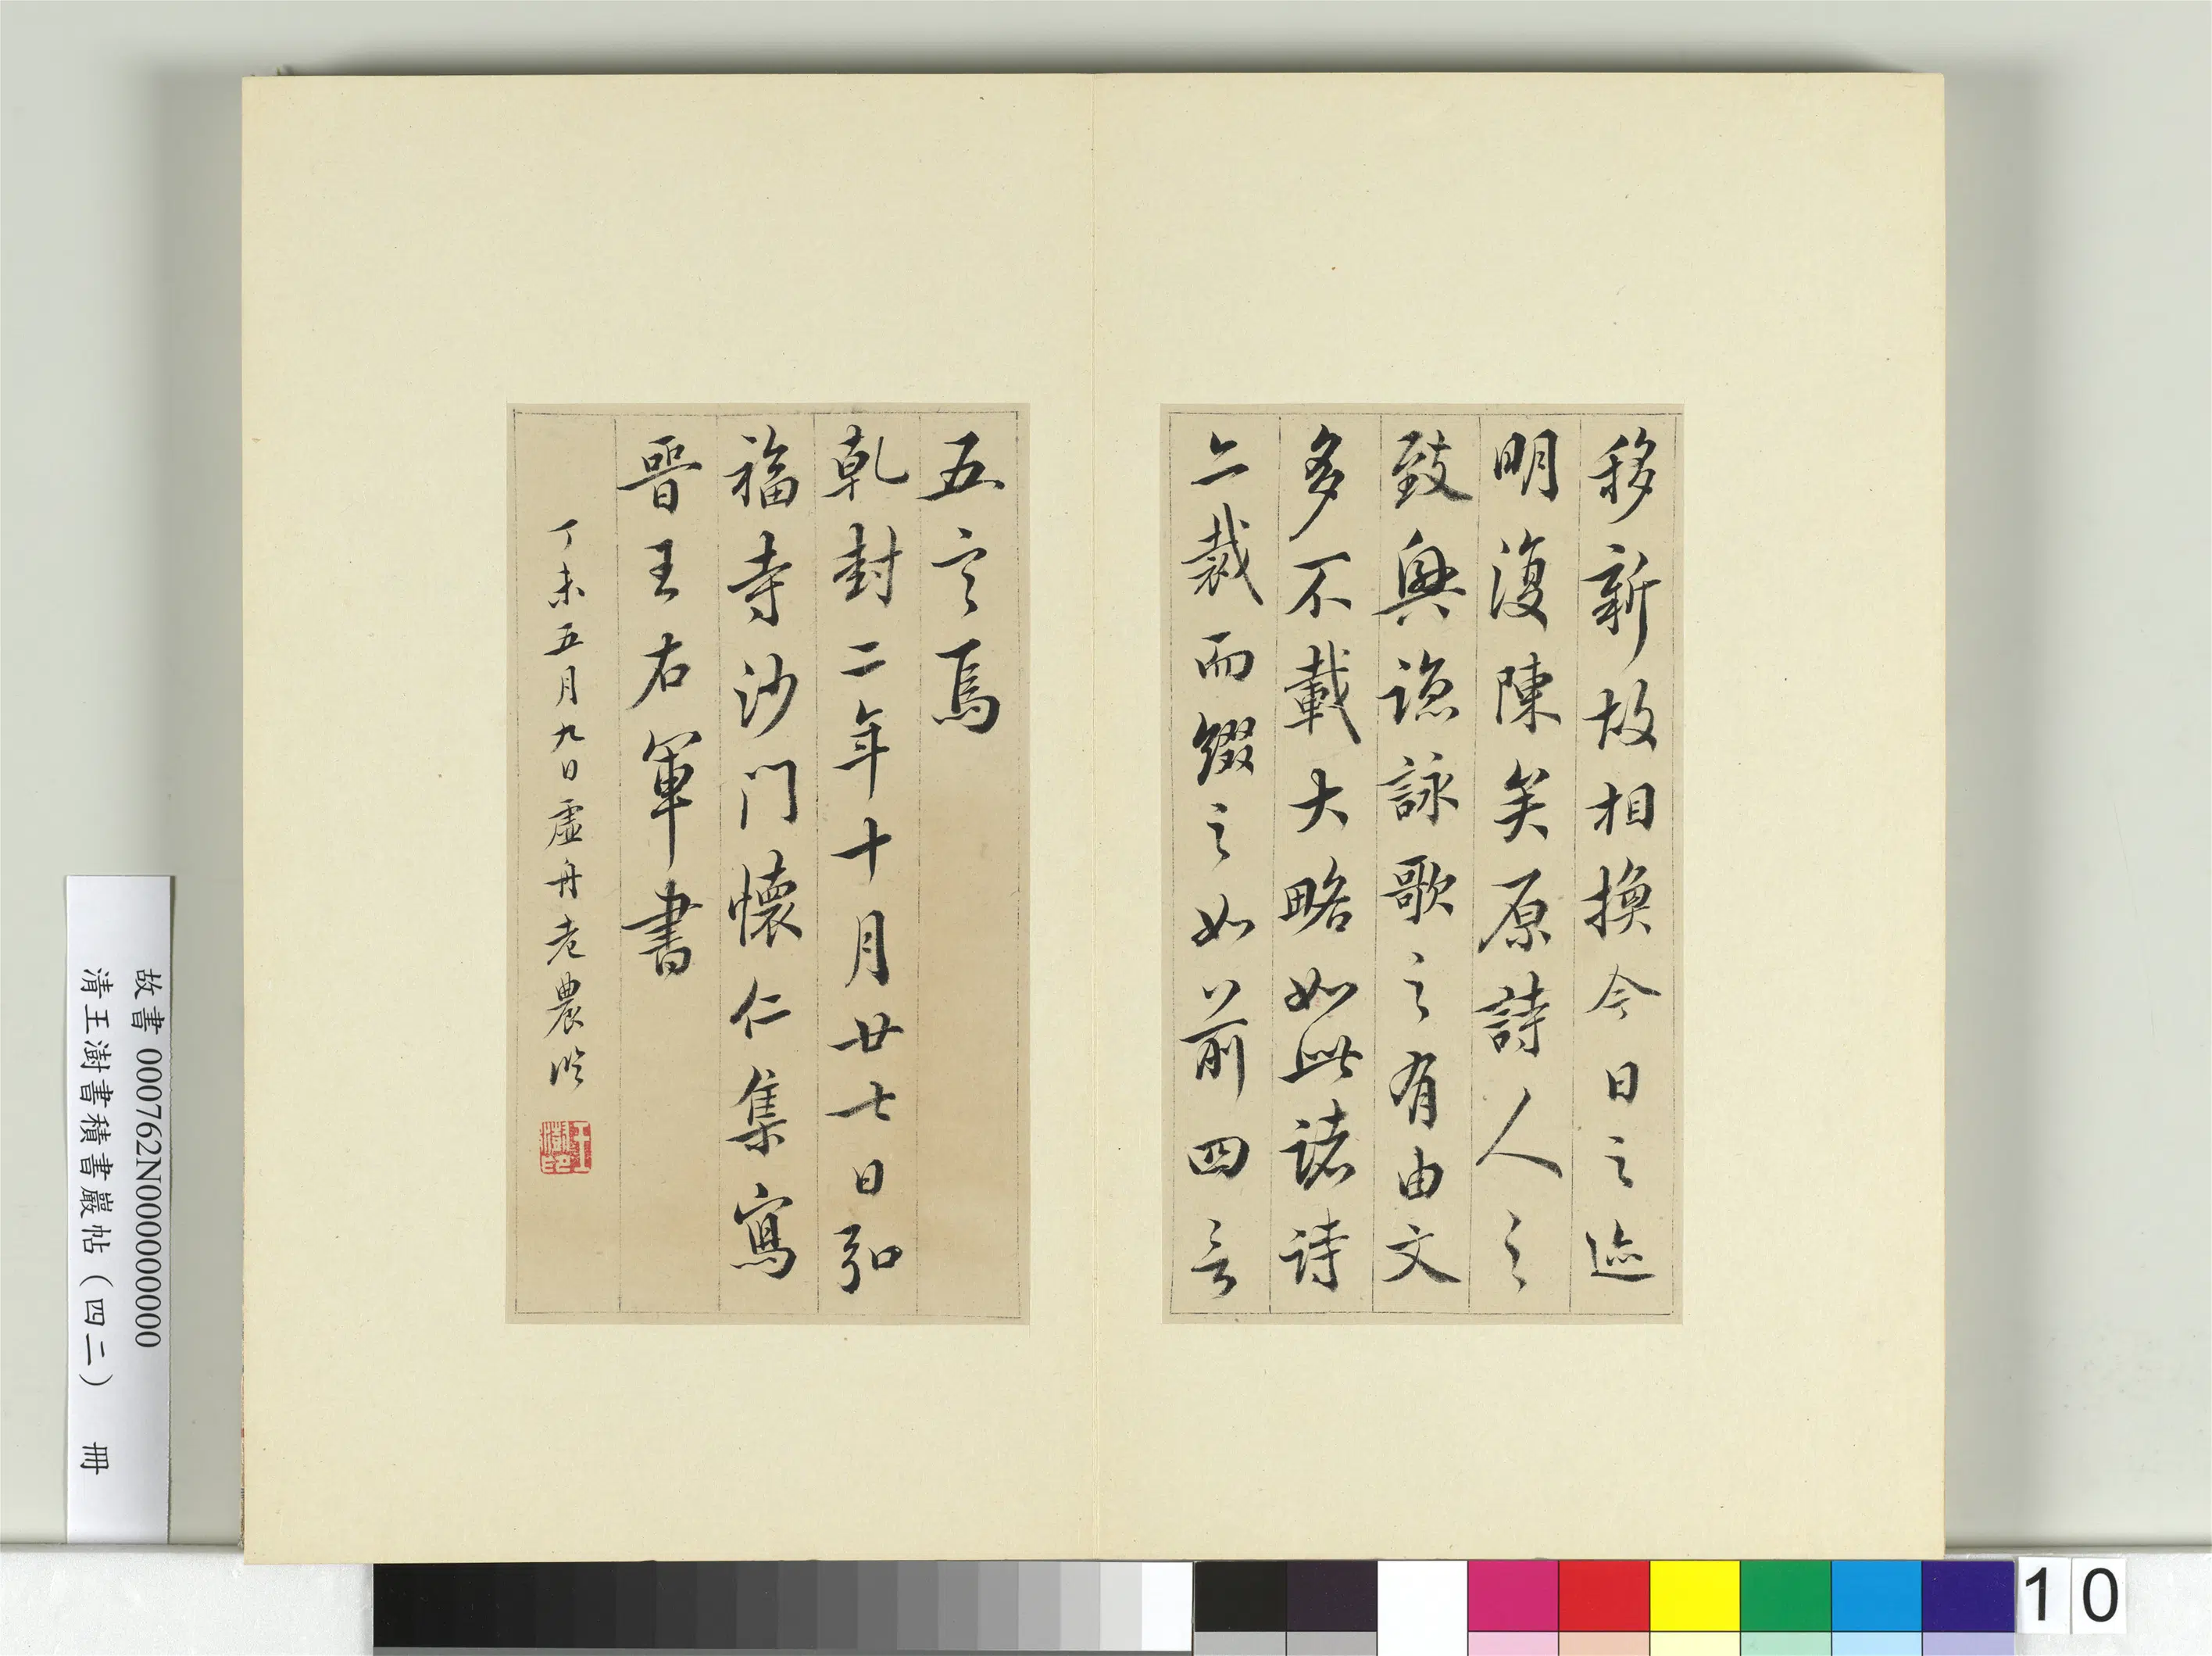 移新故相換今日之迹
明復陳矣原詩人之
致興諒詠歌之有由文
多不載大略如此諸詩
亦裁而綴之如前四言
五言焉
乾封二年十月廿七日弘
福寺沙門懷仁集寫
晉王右軍書
丁未五月九日虛舟老農臨
王澍印
故書 000762N000000000
清王澍書積書巖帖（四二） 冊
10